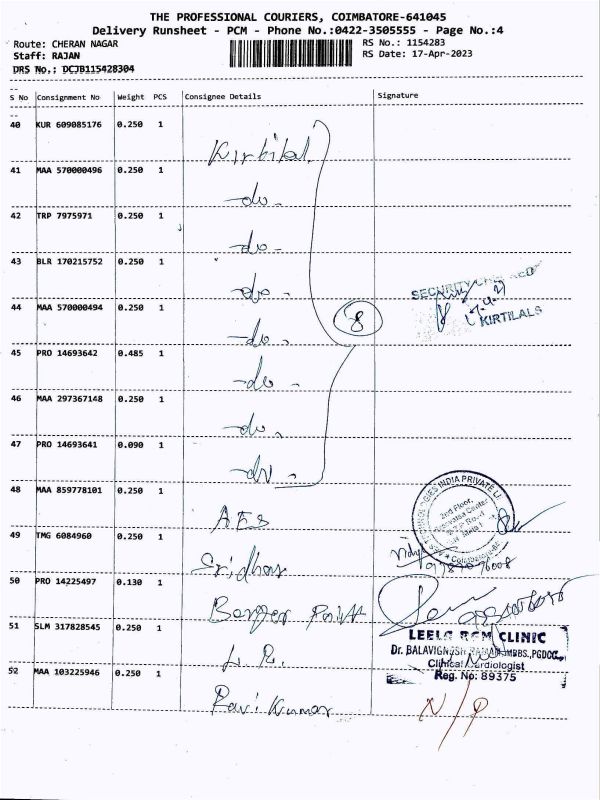 THE PROFESSIONAL COURIERS, COIMBATORE-641045
Delivery Runsheet - PCM - Phone No.:0422-3505555 - Page No.:4
Route: CHERAN NAGAR
RS No.: 1154283
Staff: RAJAN
RS Date: 17-Apr-2023
DRS No.: DCJB115428304
S No Consignment No Weight PCS Consignee Details Signature
40 KUR 609085176 0.250 1
Kirtilal
41 MAA 570000496 0.250 1
-do-
42 TRP 7975971 0.250 1
-do-
43 BLR 170215752 0.250 1
-do-
SECURITY
44 MAA 570000494 0.250 1
KIRTILALS
8
-do-
45 PRO 14693642 0.485 1
-do-
46 MAA 297367148 0.250 1
-do-
47 PRO 14693641 0.090 1
-do-
48 MAA 859778101 0.250 1
INDIA PRIVATE
2nd Floor,
Coimbatore
AES
49 TMG 6084960 0.250 1
Sridhar
50 PRO 14225497 0.130 1
Berger Paint
51 SLM 317828545 0.250 1
LEELA RCM CLINIC
Dr. BALAVIGNESH MBBS.,PGDCC.,
L.R.
Clinical Cardiologist
52 MAA 103225946 0.250 1
Reg. No: 89375
Ravi Kumar
N/P